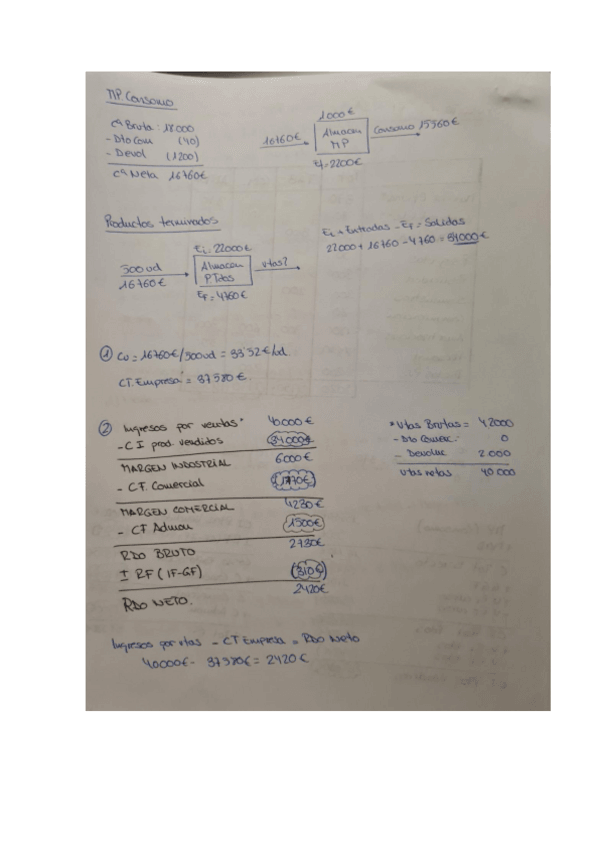 MP Consumo
Cª Bruta: 18.000
- Dto Com (40)
- Devol (1200)
Cª Neta 16760€
16760€
1000€
Almacen
MP
Ef=2200€
Consumo 15560€
Productos terminados
300 ud
16760€
Ei: 22000€
Almacen
P.Tdos
EF=4760€
vtas?
Ei + Entradas - EF = Salidas
22000 + 16760 - 4760 = 34000€
① Cu = 16760€/300ud = 33'52€/ud.
CT. Empresa = 37580€
② Ingresos por ventas* 40000€
- CI prod. vendidos (34000€)
MARGEN INDUSTRIAL 6000€
- CT. Comercial (1770€)
MARGEN COMERCIAL 4230€
- CT Admon (1500€)
RDO BRUTO 2730€
± RF (IF-GF) (310€)
RDO NETO. 2420€
*Vtas Brutas = 42000
- Dto Comerc. 0
- Devoluc 2.000
Vtas netas 40.000
Ingresos por vtas - CT Empresa = RDO Neto
40000€ - 37580€ = 2420€